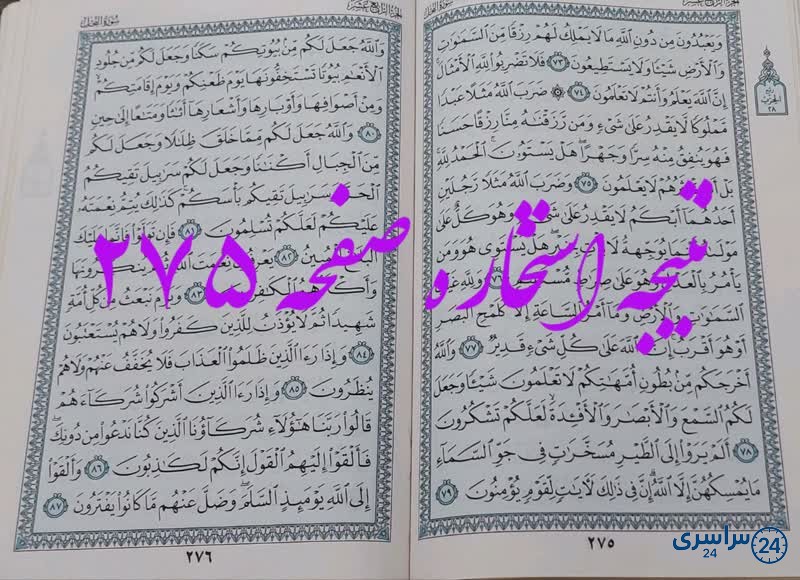 الجزء الرابع عشر
سورة النحل
وَيَعْبُدُونَ مِن دُونِ ٱللَّهِ مَا لَا يَمْلِكُ لَهُمْ رِزْقًا مِّنَ ٱلسَّمَٰوَٰتِ
وَٱلْأَرْضِ شَيْـًٔا وَلَا يَسْتَطِيعُونَ ٧٣ فَلَا تَضْرِبُوا۟ لِلَّهِ ٱلْأَمْثَالَ
إِنَّ ٱللَّهَ يَعْلَمُ وَأَنتُمْ لَا تَعْلَمُونَ ٧٤ ۞ ضَرَبَ ٱللَّهُ مَثَلًا عَبْدًا
مَّمْلُوكًا لَّا يَقْدِرُ عَلَىٰ شَىْءٍ وَمَن رَّزَقْنَٰهُ مِنَّا رِزْقًا حَسَنًا
فَهُوَ يُنفِقُ مِنْهُ سِرًّا وَجَهْرًا هَلْ يَسْتَوُۥنَ ٱلْحَمْدُ لِلَّهِ
بَلْ أَكْثَرُهُمْ لَا يَعْلَمُونَ ٧٥ وَضَرَبَ ٱللَّهُ مَثَلًا رَّجُلَيْنِ
أَحَدُهُمَآ أَبْكَمُ لَا يَقْدِرُ عَلَىٰ شَىْءٍ وَهُوَ كَلٌّ عَلَىٰ
مَوْلَىٰهُ أَيْنَمَا يُوَجِّههُّ لَا يَأْتِ بِخَيْرٍ هَلْ يَسْتَوِى هُوَ وَمَن
يَأْمُرُ بِٱلْعَدْلِ وَهُوَ عَلَىٰ صِرَٰطٍ مُّسْتَقِيمٍ ٧٦ وَلِلَّهِ غَيْبُ
ٱلسَّمَٰوَٰتِ وَٱلْأَرْضِ وَمَآ أَمْرُ ٱلسَّاعَةِ إِلَّا كَلَمْحِ ٱلْبَصَرِ
أَوْ هُوَ أَقْرَبُ إِنَّ ٱللَّهَ عَلَىٰ كُلِّ شَىْءٍ قَدِيرٌ ٧٧ وَٱللَّهُ
أَخْرَجَكُم مِّنۢ بُطُونِ أُمَّهَٰتِكُمْ لَا تَعْلَمُونَ شَيْـًٔا وَجَعَلَ
لَكُمُ ٱلسَّمْعَ وَٱلْأَبْصَٰرَ وَٱلْأَفْـِٔدَةَ لَعَلَّكُمْ تَشْكُرُونَ
٧٨ أَلَمْ يَرَوْا۟ إِلَى ٱلطَّيْرِ مُسَخَّرَٰتٍ فِى جَوِّ ٱلسَّمَآءِ
مَا يُمْسِكُهُنَّ إِلَّا ٱللَّهُ إِنَّ فِى ذَٰلِكَ لَءَايَٰتٍ لِّقَوْمٍ يُؤْمِنُونَ ٧٩
٢٧٥
الجزء الرابع عشر
سورة النحل
وَٱللَّهُ جَعَلَ لَكُم مِّنۢ بُيُوتِكُمْ سَكَنًا وَجَعَلَ لَكُم مِّن جُلُودِ
ٱلْأَنْعَٰمِ بُيُوتًا تَسْتَخِفُّونَهَا يَوْمَ ظَعْنِكُمْ وَيَوْمَ إِقَامَتِكُمْ
وَمِنْ أَصْوَافِهَا وَأَوْبَارِهَا وَأَشْعَارِهَآ أَثَٰثًا وَمَتَٰعًا إِلَىٰ حِينٍ
٨٠ وَٱللَّهُ جَعَلَ لَكُم مِّمَّا خَلَقَ ظِلَٰلًا وَجَعَلَ لَكُم
مِّنَ ٱلْجِبَالِ أَكْنَٰنًا وَجَعَلَ لَكُمْ سَرَٰبِيلَ تَقِيكُمُ
ٱلْحَرَّ وَسَرَٰبِيلَ تَقِيكُم بَأْسَكُمْ كَذَٰلِكَ يُتِمُّ نِعْمَتَهُۥ
عَلَيْكُمْ لَعَلَّكُمْ تُسْلِمُونَ ٨١ فَإِن تَوَلَّوْا۟ فَإِنَّمَا عَلَيْكَ
ٱلْبَلَٰغُ ٱلْمُبِينُ ٨٢ يَعْرِفُونَ نِعْمَتَ ٱللَّهِ ثُمَّ يُنكِرُونَهَا
وَأَكْثَرُهُمُ ٱلْكَٰفِرُونَ ٨٣ وَيَوْمَ نَبْعَثُ مِن كُلِّ أُمَّةٍ
شَهِيدًا ثُمَّ لَا يُؤْذَنُ لِلَّذِينَ كَفَرُوا۟ وَلَا هُمْ يُسْتَعْتَبُونَ
٨٤ وَإِذَا رَءَا ٱلَّذِينَ ظَلَمُوا۟ ٱلْعَذَابَ فَلَا يُخَفَّفُ عَنْهُمْ وَلَا هُمْ
يُنظَرُونَ ٨٥ وَإِذَا رَءَا ٱلَّذِينَ أَشْرَكُوا۟ شُرَكَآءَهُمْ
قَالُوا۟ رَبَّنَا هَٰٓؤُلَآءِ شُرَكَآؤُنَا ٱلَّذِينَ كُنَّا نَدْعُوا۟ مِن دُونِكَ
فَأَلْقَوْا۟ إِلَيْهِمُ ٱلْقَوْلَ إِنَّكُمْ لَكَٰذِبُونَ ٨٦ وَأَلْقَوْا۟
إِلَى ٱللَّهِ يَوْمَئِذٍ ٱلسَّلَمَ وَضَلَّ عَنْهُم مَّا كَانُوا۟ يَفْتَرُونَ ٨٧
٢٧٦
نتیجه استخاره صفحه ۲۷۵
سراسری 24
24